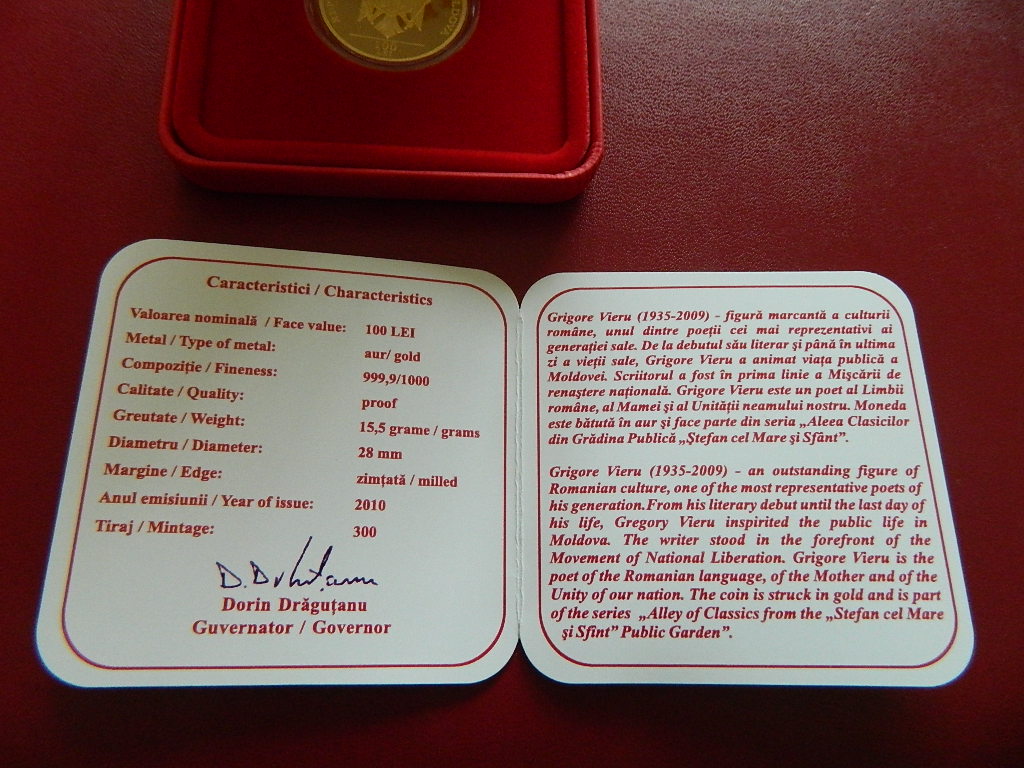 100
Caracteristici / Characteristics
Valoarea nominală / Face value: 100 LEI
Metal / Type of metal: aur/ gold
Compoziție / Fineness: 999,9/1000
Calitate / Quality: proof
Greutate / Weight: 15,5 grame / grams
Diametru / Diameter: 28 mm
Margine / Edge: zimțată / milled
Anul emisiunii / Year of issue: 2010
Tiraj / Mintage: 300
Dorin Drăguțanu
Guvernator / Governor
Grigore Vieru (1935-2009) - figură marcantă a culturii
române, unul dintre poeții cei mai reprezentativi ai
generației sale. De la debutul său literar și până în ultima
zi a vieții sale, Grigore Vieru a animat viața publică a
Moldovei. Scriitorul a fost în prima linie a Mișcării de
renaștere națională. Grigore Vieru este un poet al Limbii
române, al Mamei și al Unității neamului nostru. Moneda
este bătută în aur și face parte din seria „Aleea Clasicilor
din Grădina Publică „Ștefan cel Mare și Sfânt”.
Grigore Vieru (1935-2009) - an outstanding figure of
Romanian culture, one of the most representative poets of
his generation.From his literary debut until the last day of
his life, Gregory Vieru inspirited the public life in
Moldova. The writer stood in the forefront of the
Movement of National Liberation. Grigore Vieru is the
poet of the Romanian language, of the Mother and of the
Unity of our nation. The coin is struck in gold and is part
of the series „Alley of Classics from the „Stefan cel Mare
și Sfint” Public Garden”.